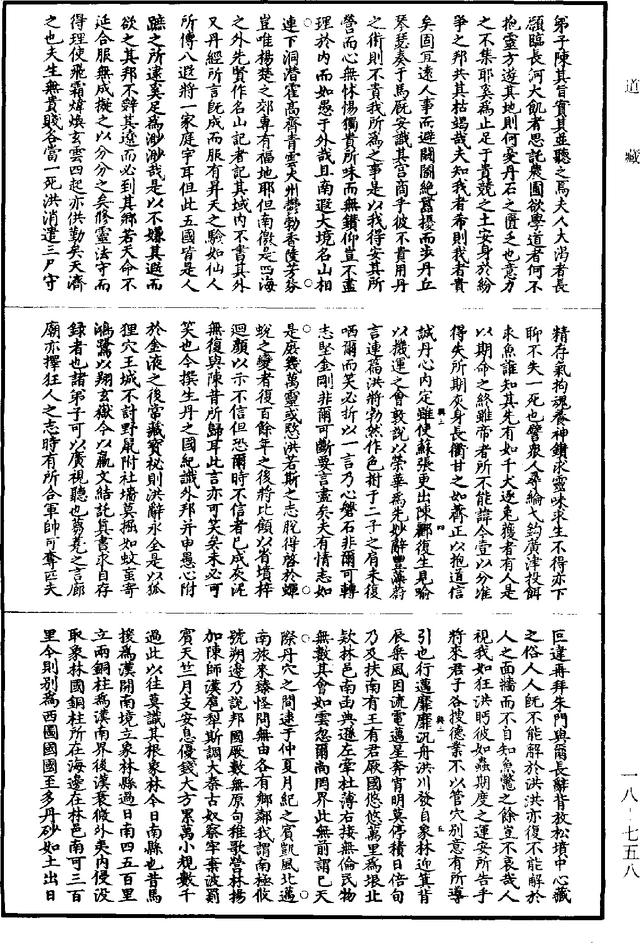 道藏
弟子陳其旨實其並聽之焉夫人大渴者長
願臨長河大飢者思託農圃欲學道者何不
抱靈方遊其地則何憂丹石之匱乏也意力
之不集耶奚為止足于貴競之土安身於紛
爭之邦共其枯竭哉夫知我者希則我者貴
矣固宜遠人事而避鬪閙絶囂擾而步丹丘
琴瑟奏于馬厩安識其宫商乎彼不貴用丹
之術則不貴我所為之事是以我得安其所
營而心無怵惕獨貴所味而無鑽仰豈不盡
理於内而如愚于外哉且南遐大境名山相
連下洞潜霍高齊青雲大州鬱勃香陵芳芬
豈唯楊楚之郊專有福地耶但南徼是四海
之外先賢作名山記者記其域内不書其外
又丹經所言旣成而服有昇天之驗如仙人
所傳八遐將一家庭宇耳但此五國皆是人
跡之所逮奚足為渺渺哉是以不嫌其遐而
欲之其邦不辭其遠而必到其鄉若天命不
延合服無成擬之以分分之矣脩靈法守而
得理使飛霜煒煥玄雲四起亦供勤矣天濟
之也夫生無貴賤各當一死洪消遣三尸守
精存氣拘魂養神鑽求靈味求生不得亦下
聊不失一死也譬衆人尋綸弋釣廣津投餌
求魚誰知其先有如千犬逐兔獲者有人是
以期命之終雖帝者所不能諱今壹以分准
得失所期灰身長衢甘之如薺正以抱道信
誠丹心内定雖使蘇張更出陳酈復生見喻
以機運之會敦説以榮華為先妙辭豐藻蔚
言連篇洪將勃然作色拊于二子之肩未復
哂爾而笑必折以一言乃心磐石非爾可轉
志堅金剛非爾可斷要言盡矣夫有情志如
是麽幾萬靈或愍洪若斯之志脫得啓於蟬
蛻之變者復百餘年之後將比顏以省墳梓
迴顏以示不信但恐爾時不信者已成灰泥
無復與陳昔所歸耳此言亦可笑矣未必可
笑也今撰生丹之國紀識外邦并申愚心附
於金液之後常藏寶祕則洪辭永全是以狐
狸穴王城不討野鼠附社墻莫掘如蚊䖟寄
鴻鷺以翔玄嶽今以羸文結託真書求自存
録者也諸弟子可以廣視聽也蒭蕘之言廊
廟亦擇狂人之志時有所合軍帥可奪匹夫
叵違再拜朱門與爾長辭背放松墳中心藏
之俗人人旣不能解於洪洪亦復不能解於
人之面墻而不自知魚鱉之餘豈不哀哉人
視我如狂洪眄彼如蟲期度之運安所告乎
將來君子各搜德業不以管穴别意有所導
引也行邁靡靡汎舟洪川發自象林迎箕背
辰乗風因流電邁星奔宵明莫停積日倍旬
乃及扶南有王有君厥國悠悠萬里為垠北
欵林邑南函典遜左牽杜薄右接無倫民物
無數其會如雲忽爾尚罔界此無前謂已天
際丹穴之間逮于仲夏月紀之賓凱風北邁
南旅來臻怪問無由各有鄉鄰我謂南極攸
號朔邊乃説邦國厥數無原句稚歌營林揚
加陳師漢扈犁斯調大秦古奴察牢葉波罽
賓天竺月支安息優錢大方累萬小規數千
過此以往莫識其根象林今日南縣也昔馬
援為漢開南境立象林縣過日南四五百里
立兩銅柱為漢南界後漢衰微外夷内侵没
取象林國銅柱所在海邊在林邑南可三百
里今則别為西圖國國至多丹砂如土出日
一八-七五八